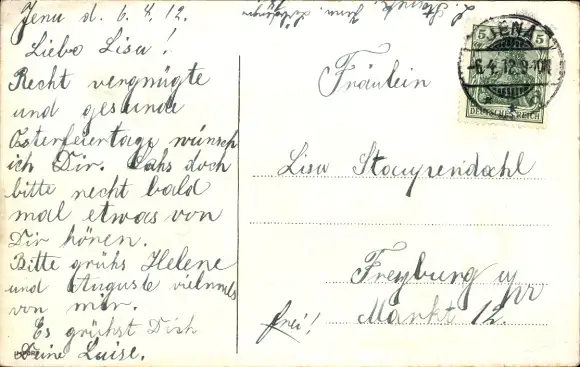 Jena d. 6. 4. 12.
Liebe Lisa!
Recht vergnügte
und gesunde
Osterfeiertage wünsch
ich Dir. Lahs doch
bitte recht bald
mal etwas von
Dir hören.
Bitte grühs Helene
und Auguste vielmals
von mir.
Es grühst Dich
Deine Luise.
Jena
JENA
-6.4.12.9-10
5 5
DEUTSCHES REICH
Fräulein
Lisa Stappendahl
Freyburg
Markt 12.
frei!